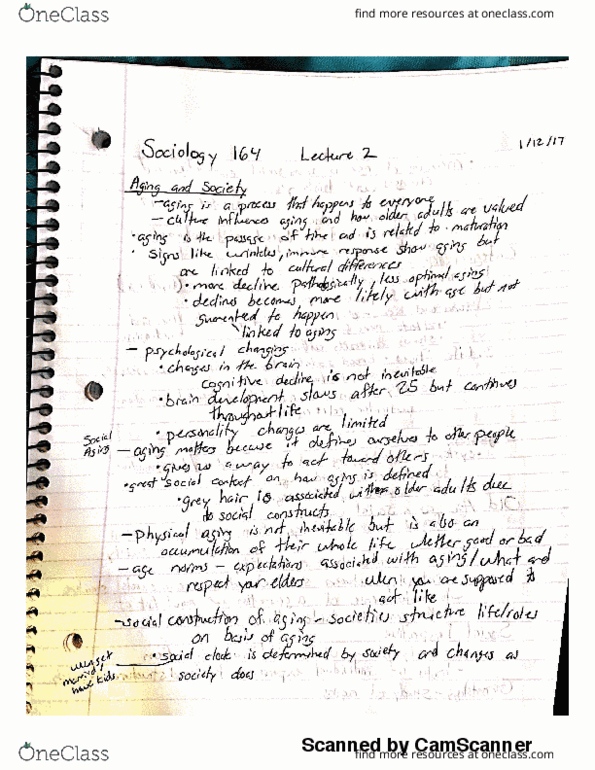 OneClass
find more resources at oneclass.com
Sociology 164 Lecture 2 1/12/17
Aging and Society
- aging is a process that happens to everyone
- culture influences aging and how older adults are valued
• aging is the passage of time and is related to maturation
• signs like wrinkles, immune response show aging but
are linked to cultural differences
• more decline pathologically, less optimal aging
• declines becomes more likely with age but not
guarenteed to happen
linked to aging
- psychological changing
• changes in the brain
cognitive decline is not inevitable
• brain development slows after 25 but continues
throughout life
• personality changes are limited
Social
Aging
- aging matters because it defines ourselves to other people
• gives us a way to act toward others
• great social context on how aging is defined
• grey hair is associated with older adults due
to social constructs
- physical aging is not inevitable but is also an
accumulation of their whole life whether good or bad
- age norms - expectations associated with aging/what and
respect your elders when you are supposed to
act like
- social construction of aging - societies structure life/roles
on basis of aging
• social clock is determined by society and changes as
society does
when get
married/
have kids
OneClass
find more resources at oneclass.com
Scanned by CamScanner